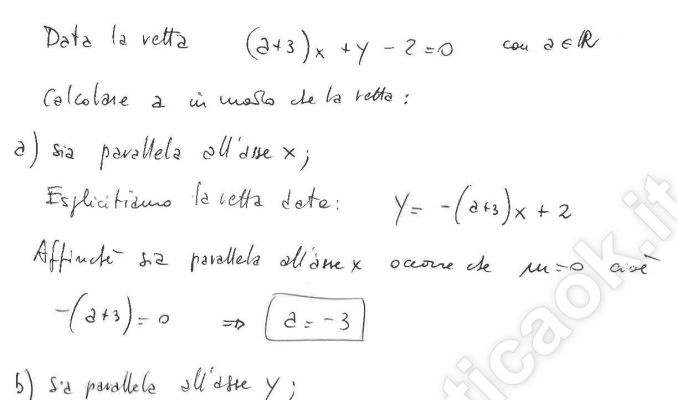 Data la retta (a+3)x + y - 2 = 0 con a ∈ ℝ
Calcolare a in modo che la retta :
a) sia parallela all'asse x ;
Esplicitiamo la retta data : y = -(a+3)x + 2
Affinché sia parallela all'asse x occorre che m = 0 cioè
-(a+3) = 0 ⇒ a = -3
b) sia parallela all'asse y ;
ticaok.it